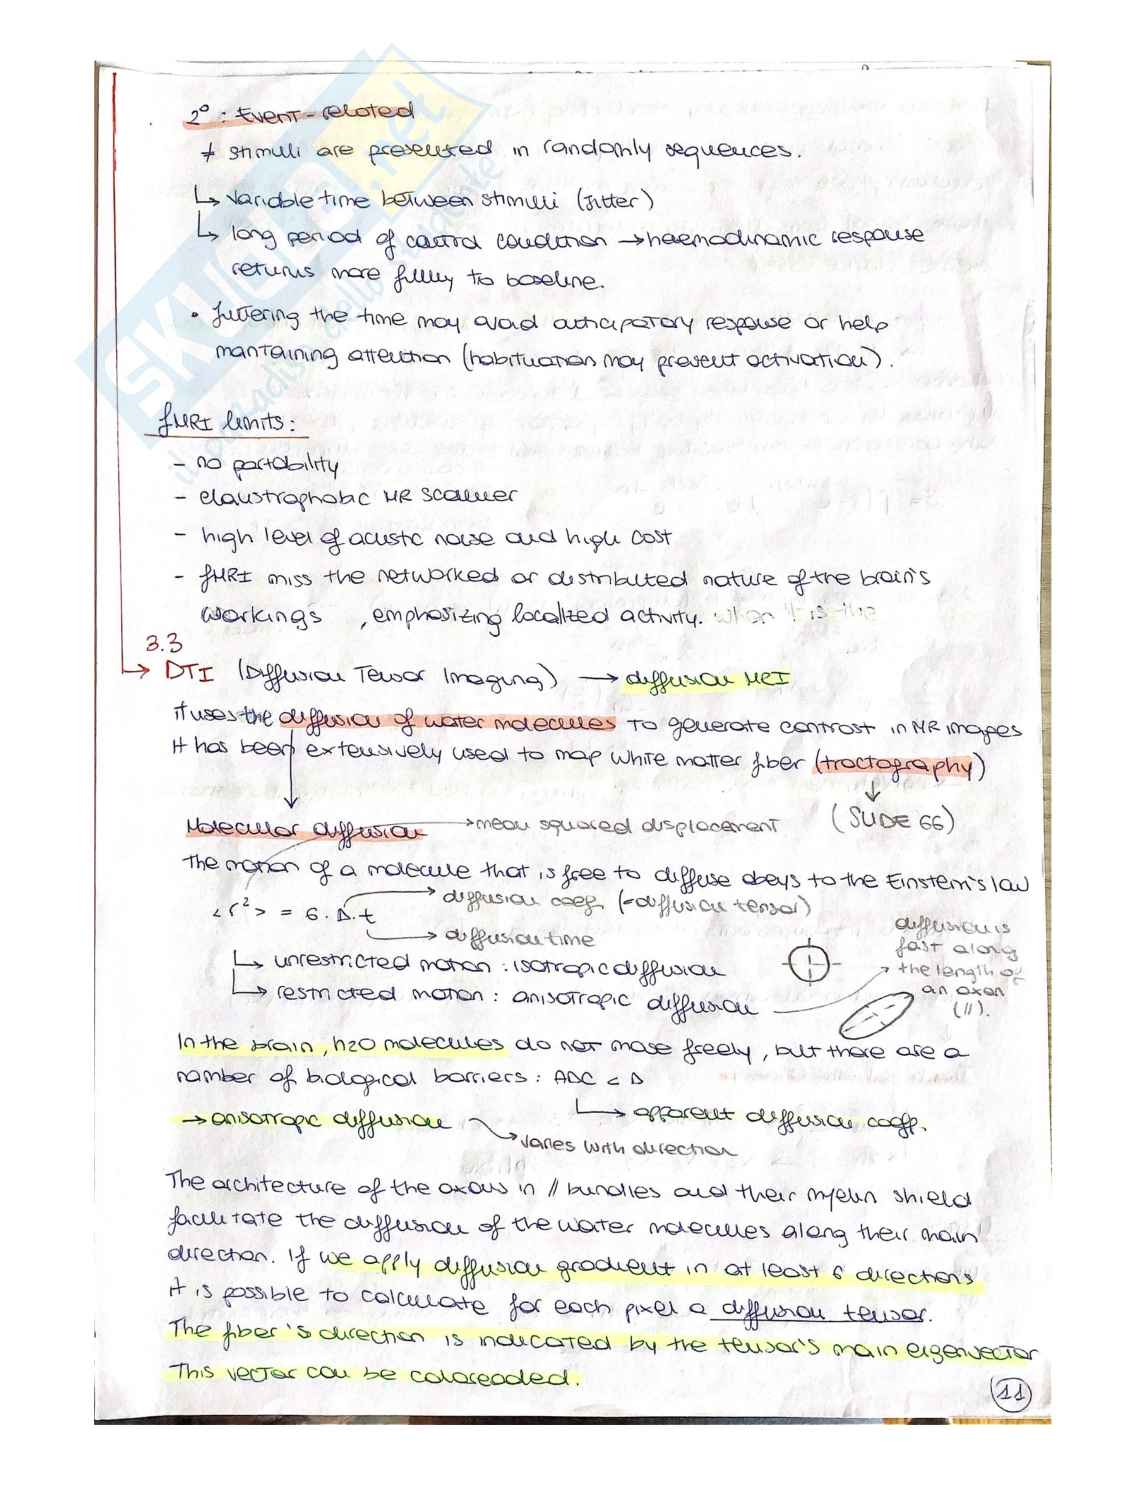 2° : Event-related
≠ stimuli are presented in randomly sequences.
↳ variable time between stimuli (jitter)
↳ long period of control condition → haemodinamic response
returns more fully to baseline.
• jittering the time may avoid anticipatory response or help
mantaining attention (habituation may prevent activation).
fMRI limits:
- no portability
- claustrophobic MR scanner
- high level of acustic noise and high cost
- fMRI miss the networked or distributed nature of the brain's
workings , emphasizing localized activity. when it is the
3.3
→ DTI (Diffusion Tensor Imaging) → diffusion MRI
it uses the diffusion of water molecules to generate contrast in MR images
It has been extensively used to map white matter fiber (tractography)
(SLIDE 66)
Molecular diffusion → mean squared displacement
The motion of a molecule that is free to diffuse obeys to the Einstein's law
→ diffusion coeff. (=diffusion tensor)
<r²> = 6.D.t
→ diffusion time
↳ unrestricted motion : isotropic diffusion
↳ restricted motion : anisotropic diffusion
diffusion is
fast along
the length of
an axon
(//).
In the brain, h2o molecules do not move freely, but there are a
number of biological barriers : ADC < D
↳ apparent diffusion coeff.
→ anisotropic diffusion
→ varies with direction
The architecture of the axons in // bundles and their myelin shield
facilitate the diffusion of the water molecules along their main
direction. If we apply diffusion gradient in at least 6 directions
it is possible to calculate for each pixel a diffusion tensor.
The fiber's direction is indicated by the tensor's main eigenvector
This vector can be colorcoded.
11
SKUOLA.net